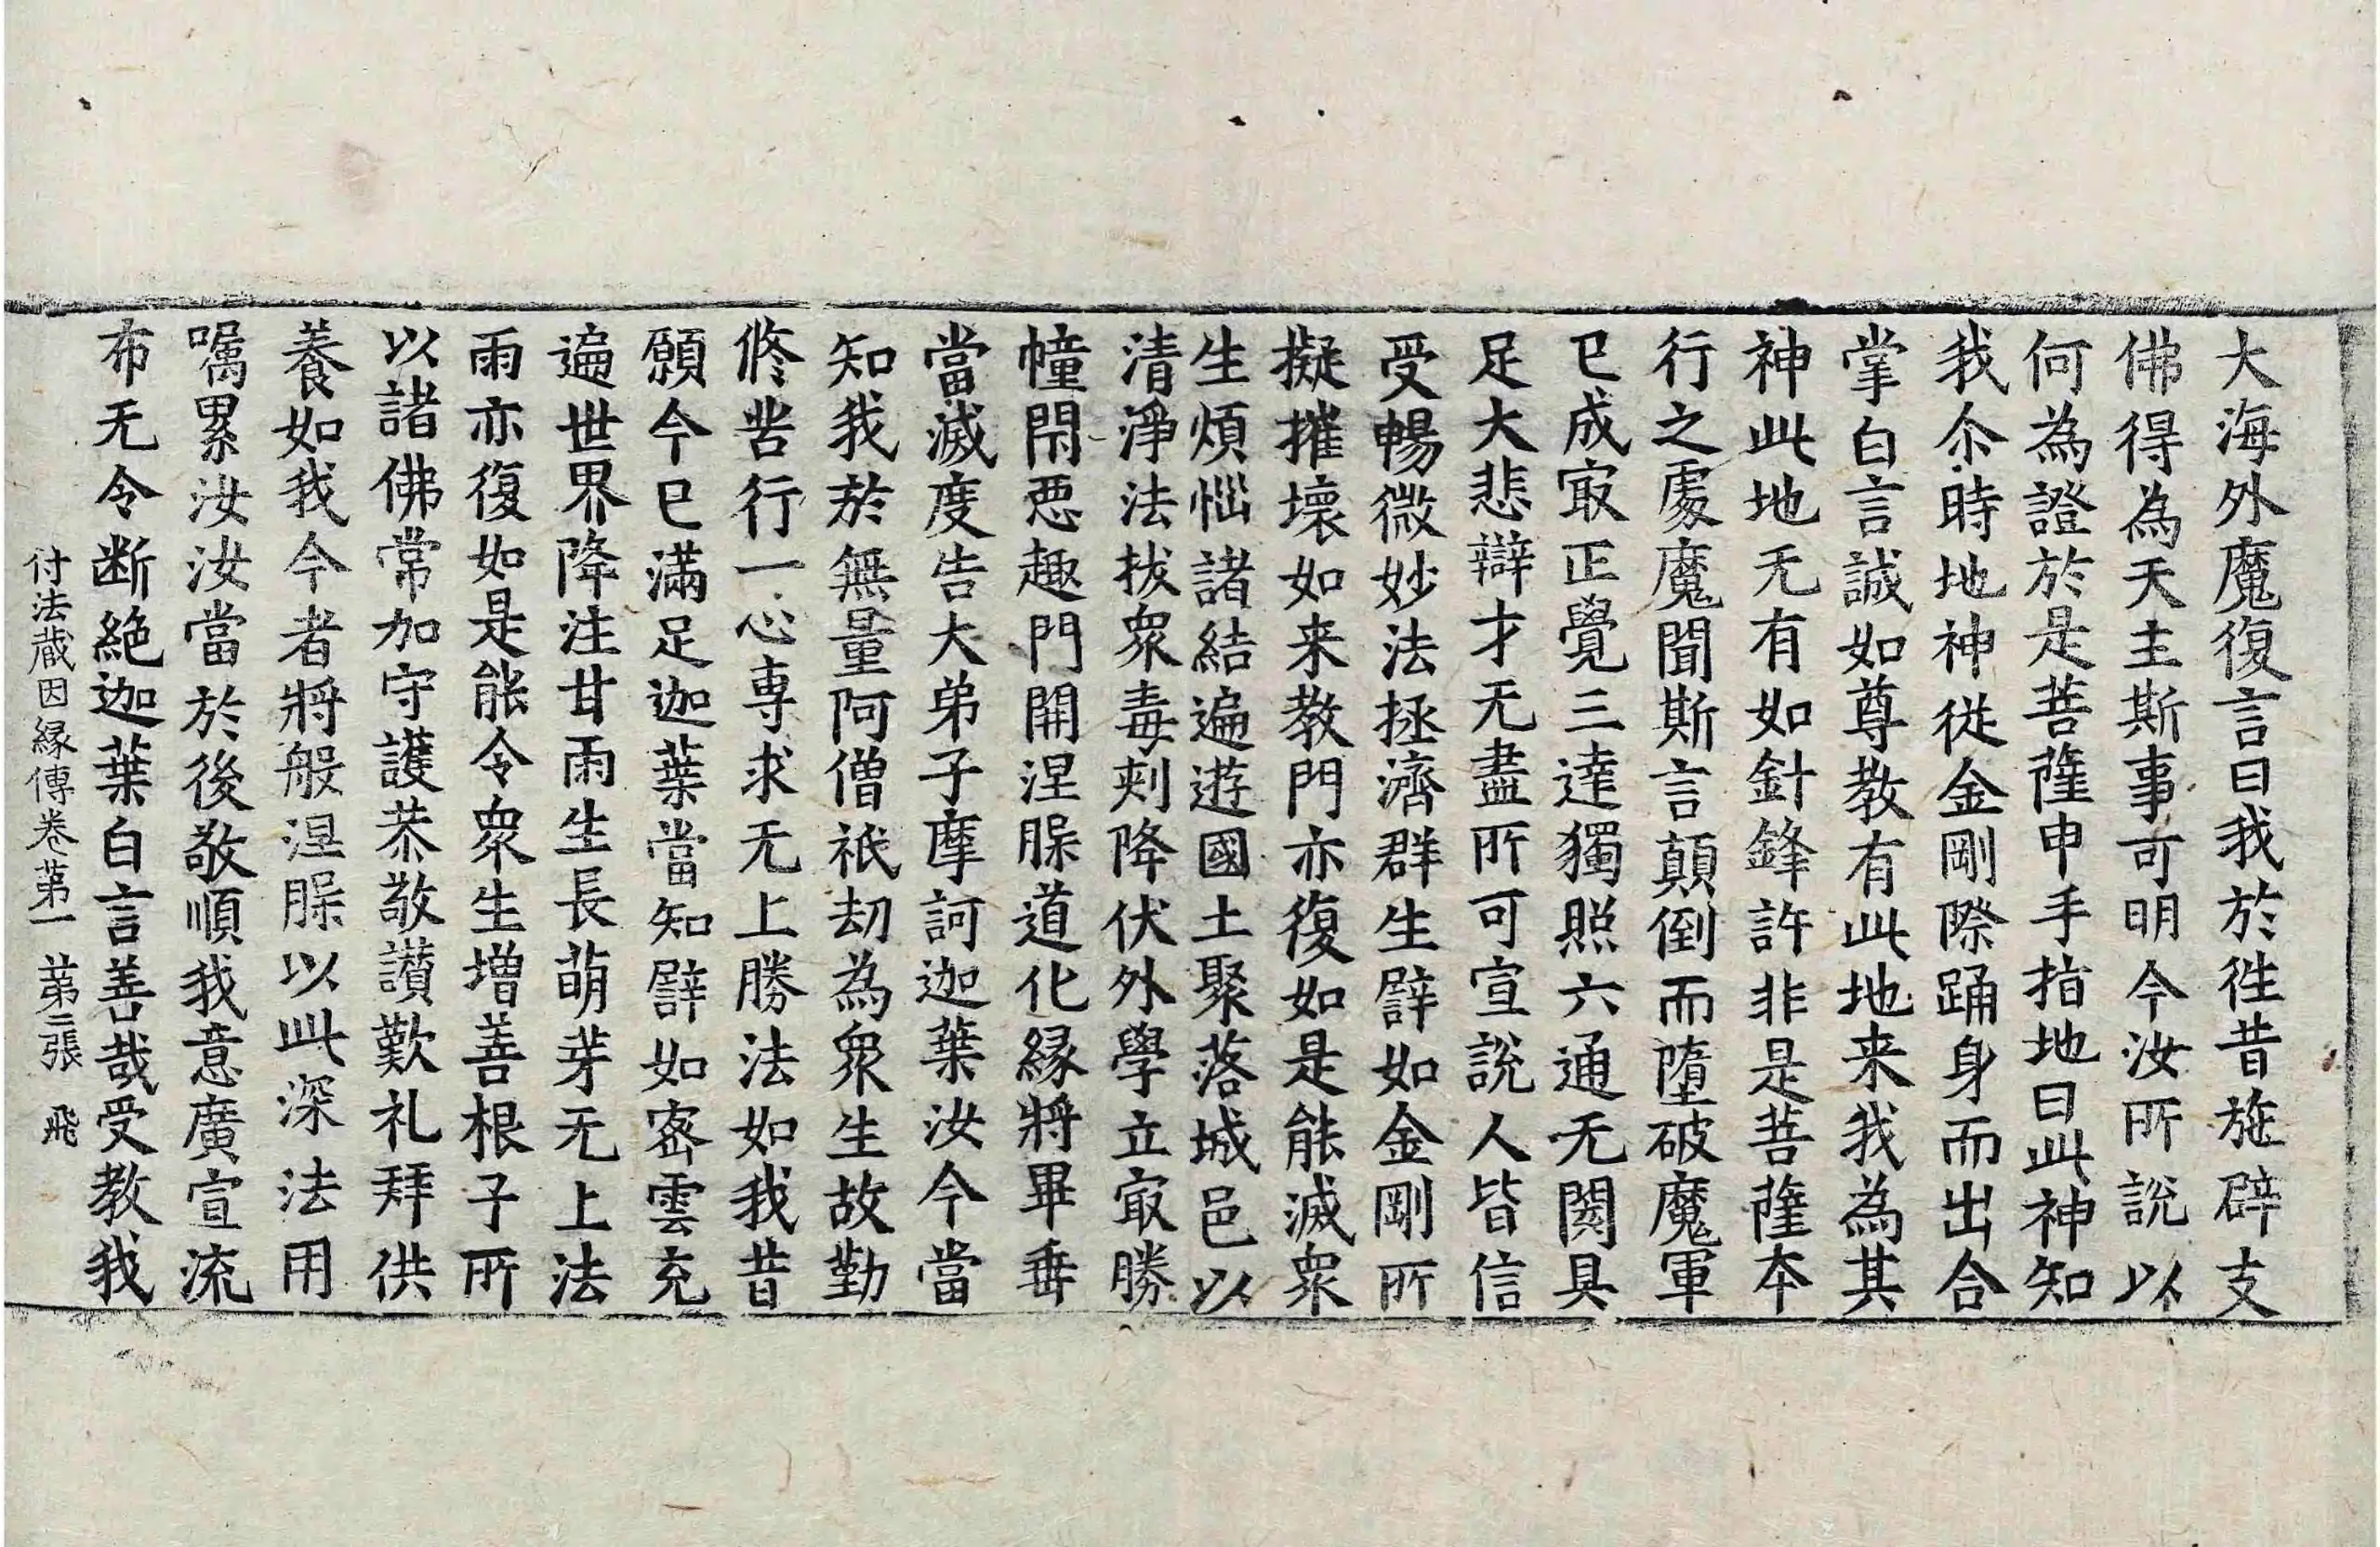 大海外魔復言曰我於徃昔施辟支
佛得為天主斯事可明今汝所說以
何為證於是菩薩申手指地曰此神知
我尒時地神從金剛際踊身而出合
掌白言誠如尊教有此地来我為其
神此地无有如針鋒許非是菩薩夲
行之處魔聞斯言顛倒而墮破魔軍
已成㝡正覺三達獨照六通无閡具
足大悲辯才无盡所可宣說人皆信
受暢微妙法拯濟群生譬如金剛所
擬摧壞如来教門亦復如是能滅衆
生煩惱諸結遍遊國土聚落城邑以
清淨法拔衆毒刺降伏外學立㝡勝
幢閇惡趣門開涅槃道化縁將畢垂
當滅度告大弟子摩訶迦葉汝今當
知我於無量阿僧祇劫為衆生故勤
修苦行一心専求无上勝法如我昔
願今已滿足迦葉當知譬如密雲充
遍世界降注甘雨生長萌芽无上法
雨亦復如是能令衆生增善根子所
以諸佛常加守護恭敬讃歎礼拜供
養如我今者將般涅槃以此深法用
囑累汝汝當於後敬順我意廣宣流
布无令断絶迦葉白言善哉受教我
付法蔵因縁傳卷苐一　苐二張　飛